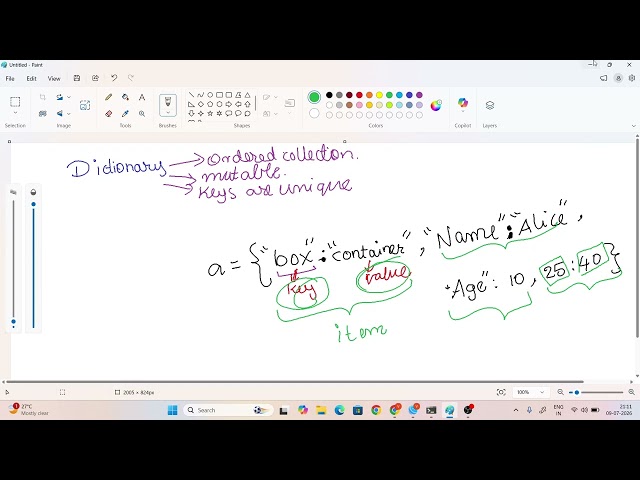 Untitled - Paint
File Edit View
Selection Image Tools Brushes Shapes Size Colors Copilot Layers
Dictionary
Ordered collection.
mutable.
Keys are unique
a = { "box" : "container" , "Name" : "Alice" ,
key value
"Age" : 10 , 25 : 40 }
item
2005 × 824px
100%
27°C
Mostly clear
Search
ENG
IN
21:11
09-07-2026